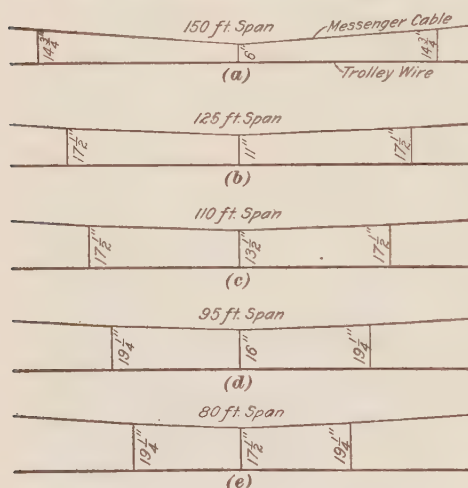 150 ft. Span
Messenger Cable
14 3/4" 6" 14 3/4"
Trolley Wire
(a)
125 ft. Span
17 1/2" 11" 17 1/2"
(b)
110 ft. Span
17 1/2" 13 1/2" 17 1/2"
(c)
95 ft. Span
19 1/4" 16" 19 1/4"
(d)
80 ft. Span
19 1/4" 17 1/2" 19 1/4"
(e)